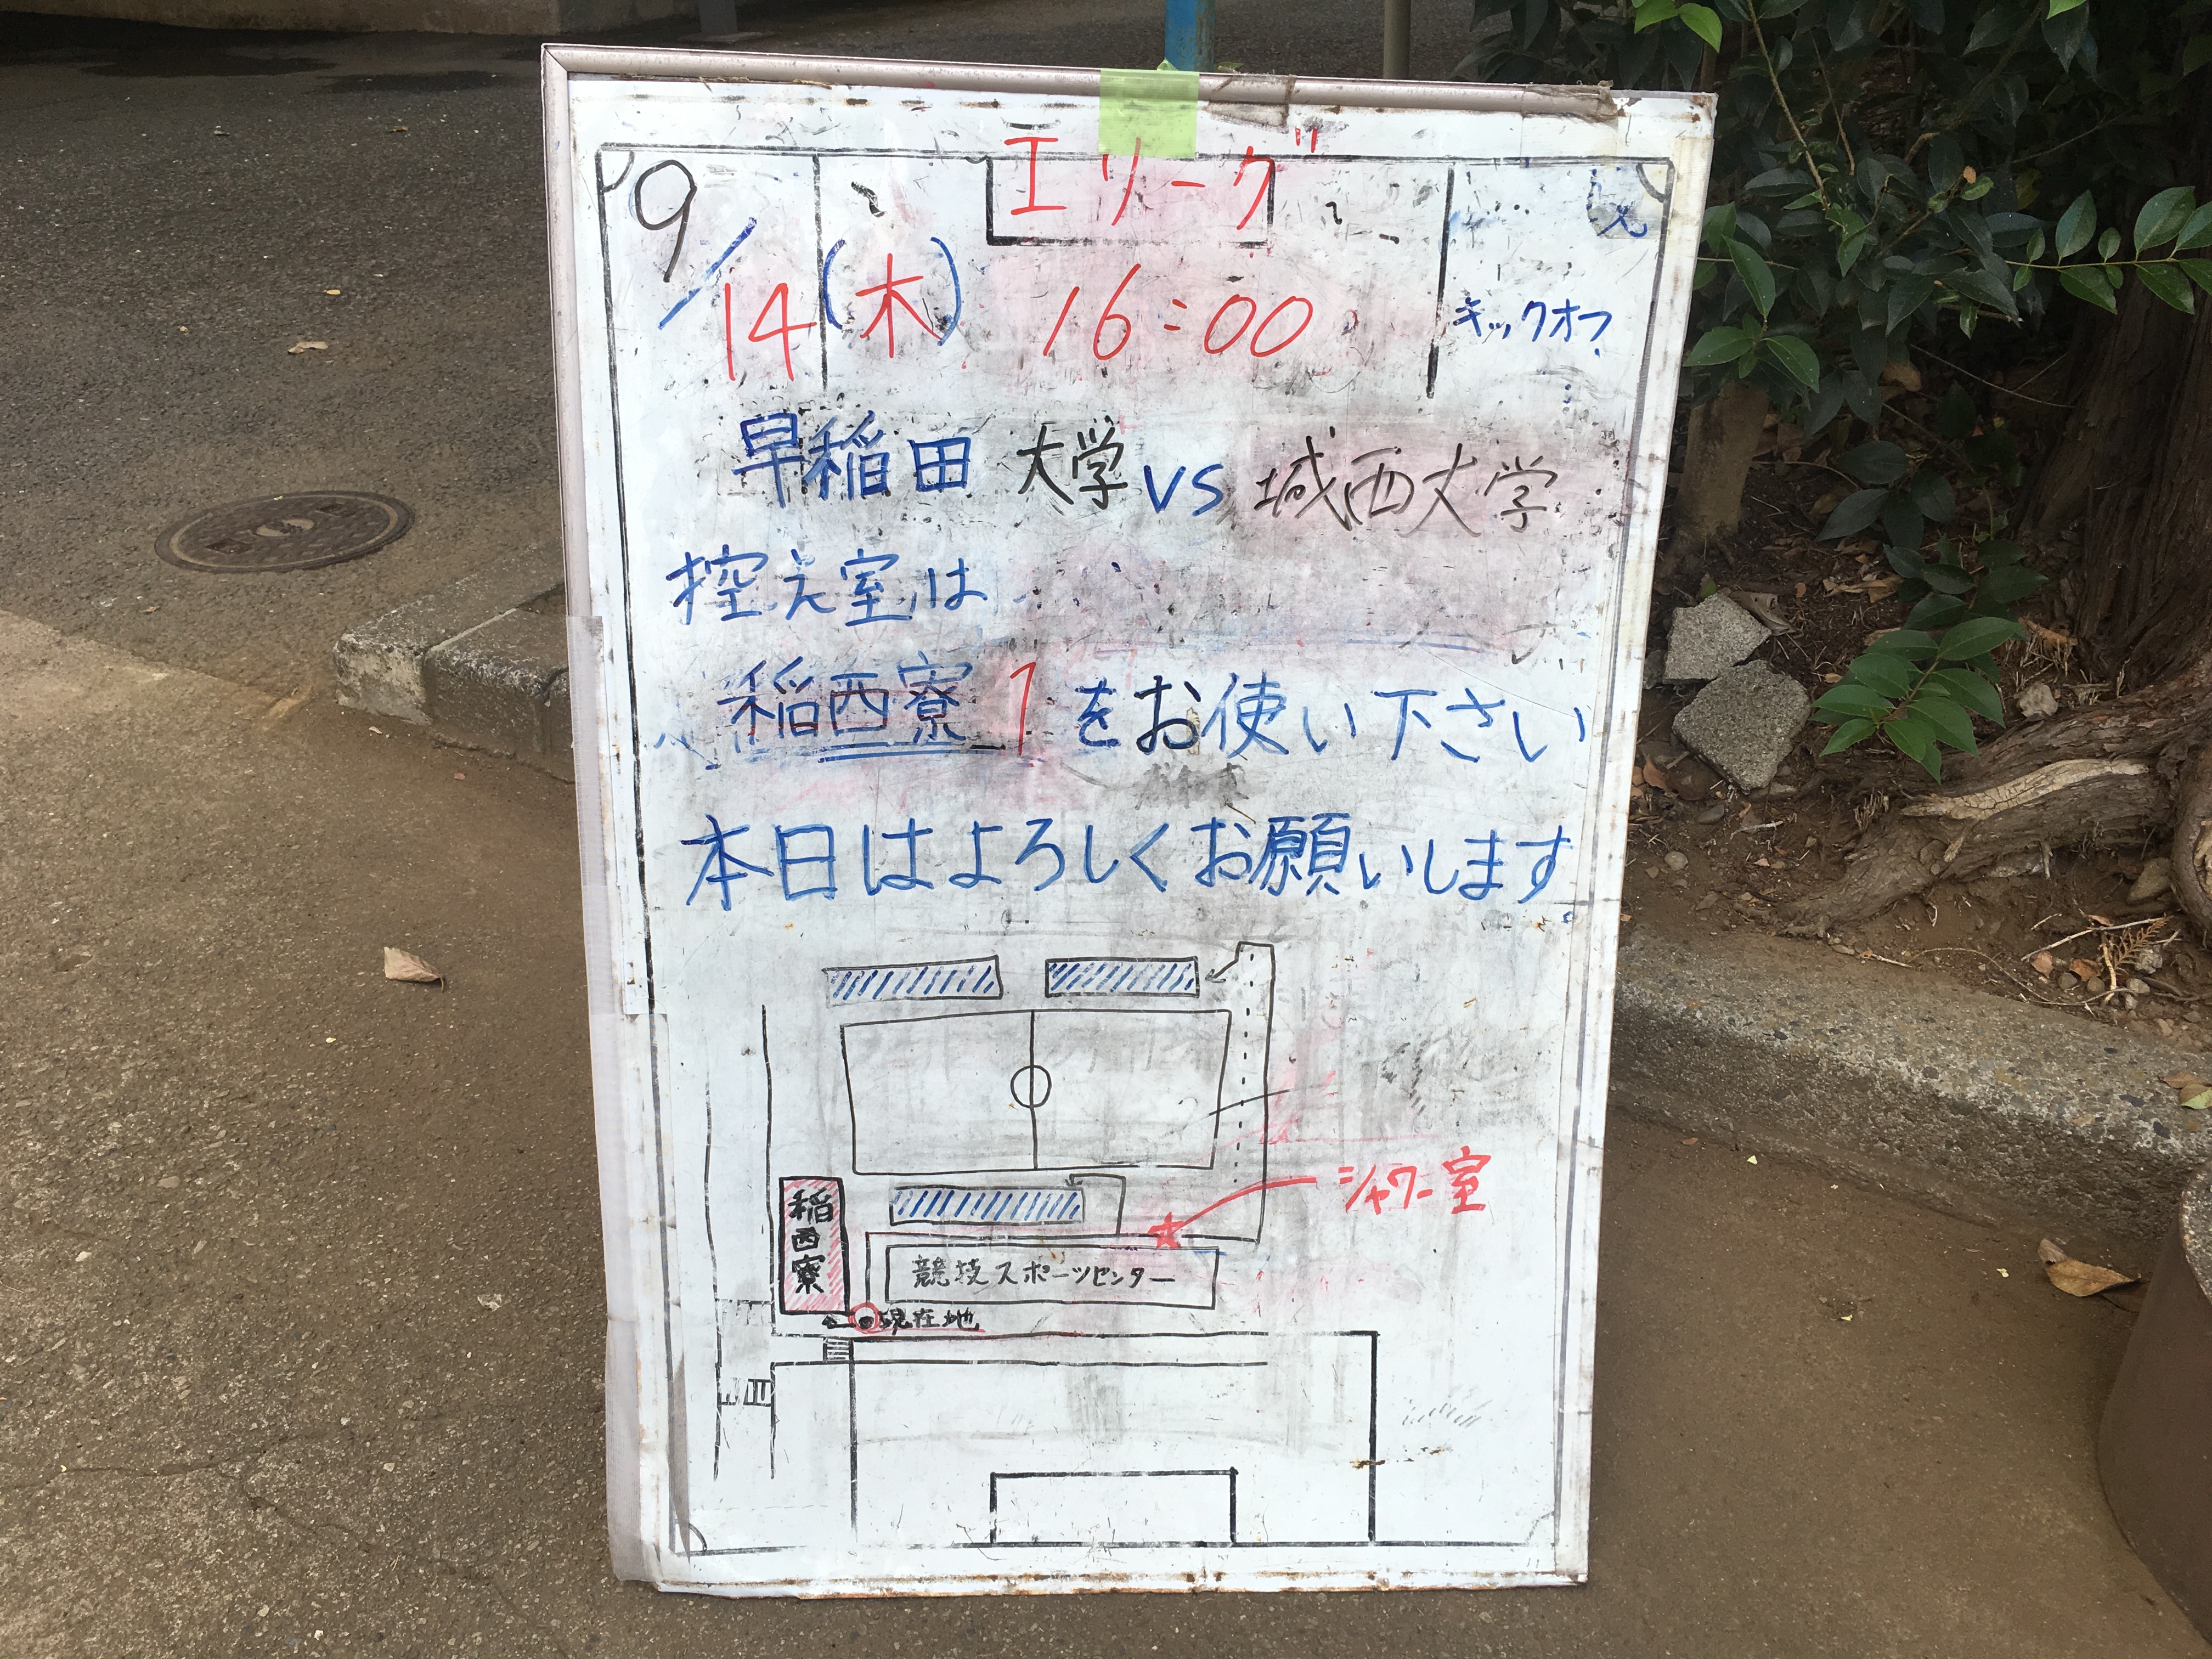 エリーグ
9/14(木) 16:00 キックオフ
早稲田大学 VS 城西大学
控え室は
稲西寮1をお使い下さい
本日はよろしくお願いします。
シャワー室
稲西寮
競技スポーツセンター
現在地